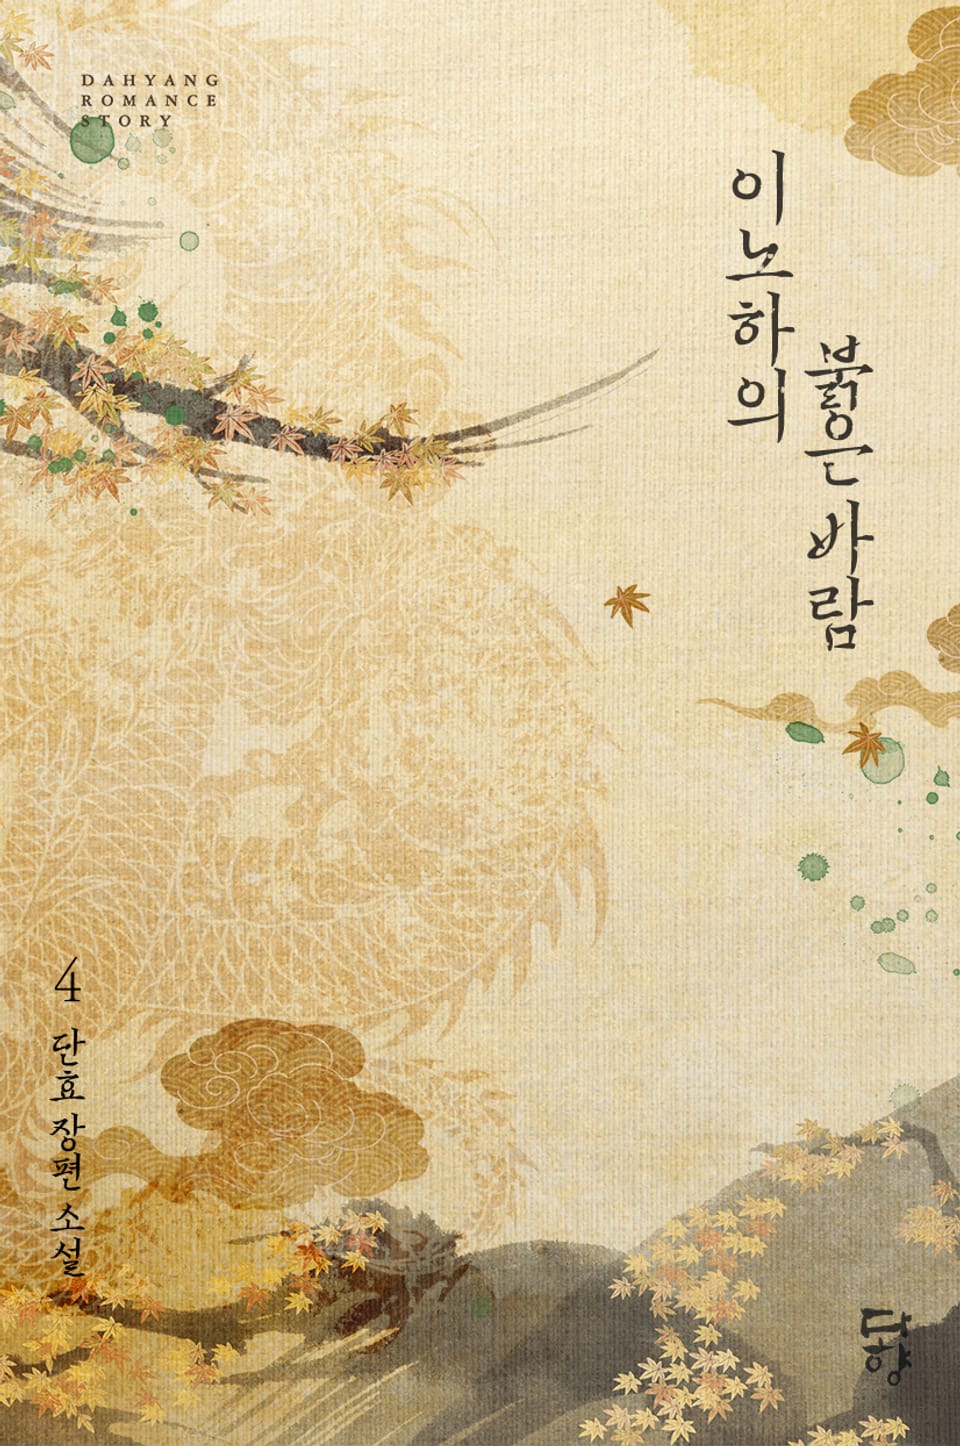 DAHYANG
ROMANCE
STORY
이노하의
붉은 바람
4 단효 장편 소설
다향